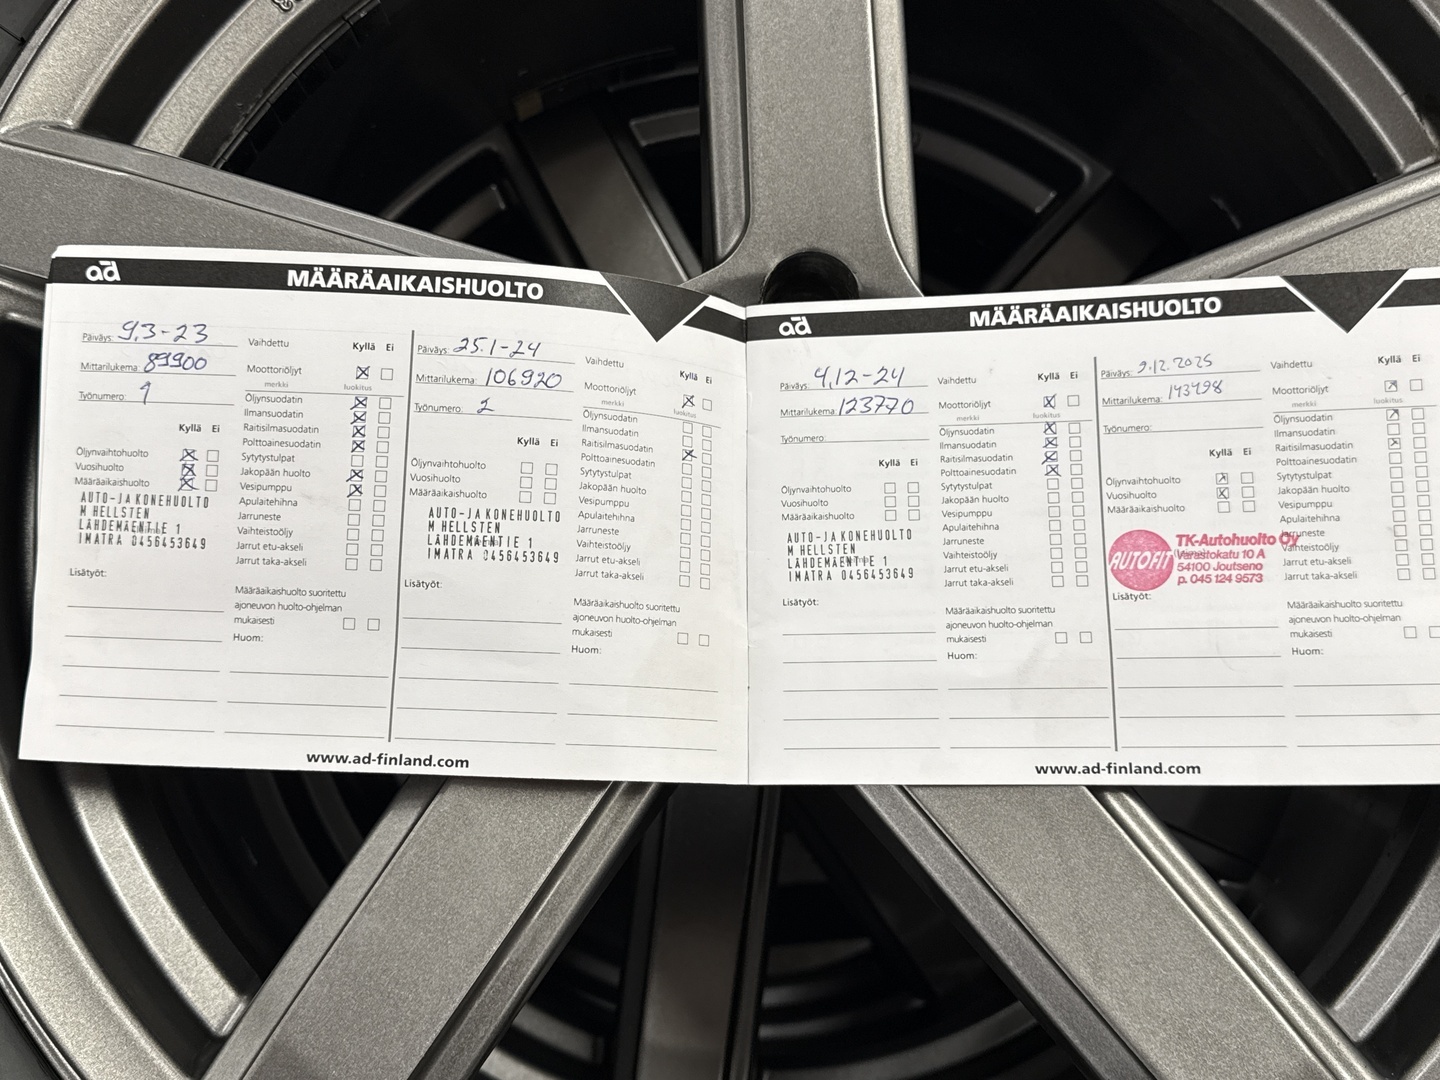 ad MÄÄRÄAIKAISHUOLTO
Päiväys: 9.3-23
Mittarilukema: 89900
Työnumero: 1
Kyllä Ei
Öljynvaihtohuolto
Vuosihuolto
Määräaikaishuolto
AUTO-JA KONEHUOLTO
M HELLSTEN
LÄHDEMÄENTIE 1
IMATRA 0456453649
Lisätyöt:
Vaihdettu Kyllä Ei
Moottoriöljyt
merkki luokitus
Öljynsuodatin
Ilmansuodatin
Raitisilmasuodatin
Polttoainesuodatin
Sytytystulpat
Jakopään huolto
Vesipumppu
Apulaitehihna
Jarruneste
Vaihteistoöljy
Jarrut etu-akseli
Jarrut taka-akseli
Määräaikaishuolto suoritettu
ajoneuvon huolto-ohjelman
mukaisesti
Huom:
Päiväys: 25.1-24
Mittarilukema: 106920
Työnumero: 2
Kyllä Ei
Öljynvaihtohuolto
Vuosihuolto
Määräaikaishuolto
AUTO-JA KONEHUOLTO
M HELLSTEN
LÄHDEMÄENTIE 1
IMATRA 0456453649
Lisätyöt:
Vaihdettu Kyllä Ei
Moottoriöljyt
merkki luokitus
Öljynsuodatin
Ilmansuodatin
Raitisilmasuodatin
Polttoainesuodatin
Sytytystulpat
Jakopään huolto
Vesipumppu
Apulaitehihna
Jarruneste
Vaihteistoöljy
Jarrut etu-akseli
Jarrut taka-akseli
Määräaikaishuolto suoritettu
ajoneuvon huolto-ohjelman
mukaisesti
Huom:
www.ad-finland.com
ad MÄÄRÄAIKAISHUOLTO
Päiväys: 4.12-24
Mittarilukema: 123770
Työnumero:
Kyllä Ei
Öljynvaihtohuolto
Vuosihuolto
Määräaikaishuolto
AUTO-JA KONEHUOLTO
M HELLSTEN
LÄHDEMÄENTIE 1
IMATRA 0456453649
Lisätyöt:
Vaihdettu Kyllä Ei
Moottoriöljyt
merkki luokitus
Öljynsuodatin
Ilmansuodatin
Raitisilmasuodatin
Polttoainesuodatin
Sytytystulpat
Jakopään huolto
Vesipumppu
Apulaitehihna
Jarruneste
Vaihteistoöljy
Jarrut etu-akseli
Jarrut taka-akseli
Määräaikaishuolto suoritettu
ajoneuvon huolto-ohjelman
mukaisesti
Huom:
Päiväys: 9.12.2025
Mittarilukema: 143498
Työnumero:
Kyllä Ei
Öljynvaihtohuolto
Vuosihuolto
Määräaikaishuolto
AUTOFIT
TK-Autohuolto Oy
Varastokatu 10 A
54100 Joutseno
p. 045 124 9573
Lisätyöt:
Vaihdettu Kyllä Ei
Moottoriöljyt
merkki luokitus
Öljynsuodatin
Ilmansuodatin
Raitisilmasuodatin
Polttoainesuodatin
Sytytystulpat
Jakopään huolto
Vesipumppu
Apulaitehihna
Jarruneste
Vaihteistoöljy
Jarrut etu-akseli
Jarrut taka-akseli
Määräaikaishuolto suoritettu
ajoneuvon huolto-ohjelman
mukaisesti
Huom:
www.ad-finland.com